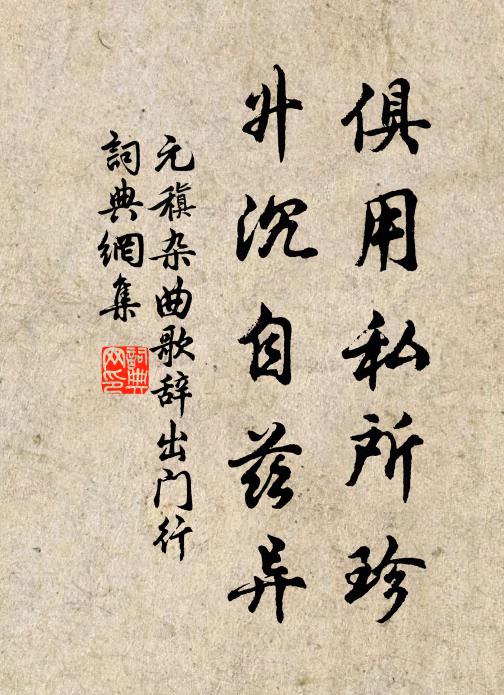 俱用私所珍
升沉自茲异
元稹杂曲歌辞出门行
詞典網集
詞典
网印